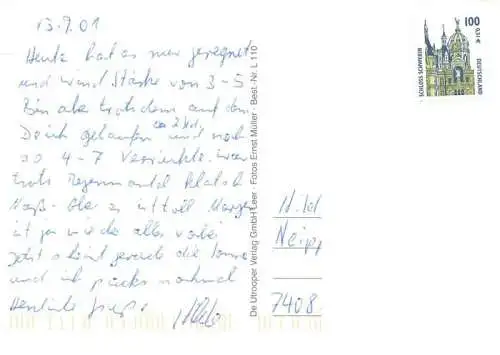 13.9.01
Heute hat es nur geregnet
und Windstärke von 3-5
Bin aber trotzdem auf dem
Deich gelaufen ca 2 Std. und noch
so 4-7 Verrückte. war
trotz Regenmantel klatsch
Naß. Aber es ist toll Morgen
ist ja wieder alles vorbei
Jetzt scheint gerade die Sonne
und ich packs nochmal
Herzliche Grüße
De Utrooper Verlag GmbH Leer · Fotos Ernst Müller · Best.-Nr. L 110
100
0,51 €
DEUTSCHLAND
7408